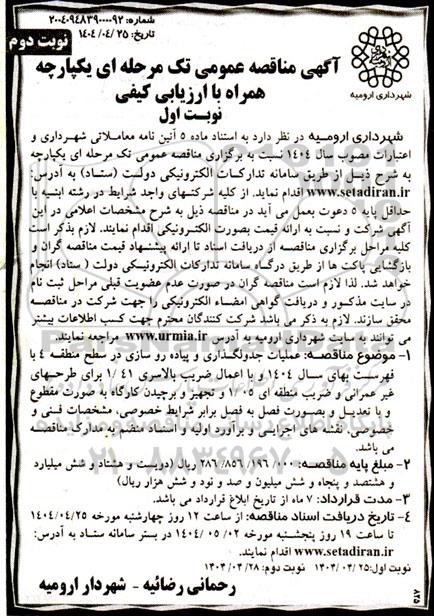 شماره: ۲۰۰۴۰۹۴۸۳۹۰۰۰۰۹۲
تاریخ: ۱۴۰۴/۰۴/۲۵
نوبت دوم
شهرداری ارومیه
آگهی مناقصه عمومی تک مرحله ای یکپارچه
همراه با ارزیابی کیفی
نوبت اول
شهرداری ارومیه در نظر دارد به استناد ماده ۵ آئین نامه معاملاتی شهرداری و
اعتبارات مصوب سال ۱۴۰۴ نسبت به برگزاری مناقصه عمومی تک مرحله ای یکپارچه
به شرح ذیل از طریق سامانه تدارکات الکترونیکی دولت (ستاد) به آدرس:
www.setadiran.ir اقدام نماید. از کلیه شرکتهای واجد شرایط در رشته ابنیه با
حداقل پایه ۵ دعوت بعمل می آید در مناقصه ذیل به شرح مشخصات اعلامی در این
آگهی شرکت و نسبت به ارائه قیمت بصورت الکترونیکی اقدام نمایند. لازم بذکر است
کلیه مراحل برگزاری مناقصه از دریافت اسناد تا ارائه پیشنهاد قیمت مناقصه گران و
بازگشایی پاکت ها از طریق درگاه سامانه تدارکات الکترونیکی دولت ( ستاد) انجام
خواهد شد. لذا لازم است مناقصه گران در صورت عدم عضویت قبلی مراحل ثبت نام
در سایت مذکور و دریافت گواهی امضاء الکترونیکی را جهت شرکت در مناقصه
محقق سازند. لازم به ذکر می باشد شرکت کنندگان محترم جهت کسب اطلاعات بیشتر
می توانند به سایت شهرداری ارومیه به آدرس www.urmia.ir مراجعه نمایند.
۱- موضوع مناقصه: عملیات جدولگذاری و پیاده رو سازی در سطح منطقه ۴ با
فهرست بهای سال ۱۴۰۴ و با اعمال ضریب بالاسری ۱/۴۱ برای طرحهای
غیر عمرانی و ضریب منطقه ای ۱/۰۵ و تجهیز و برچیدن کارگاه به صورت مقطوع
و با تعدیل و بصورت فصل به فصل برابر شرایط خصوصی، مشخصات فنی و
خصوصی، نقشه های اجرایی و برآورد اولیه و اسناد منضم به مدارک مناقصه
می باشد.
۲- مبلغ پایه مناقصه: ۲۸۶/۸۵۶/۱۹۶/۰۰۰ ریال (دویست و هشتاد و شش میلیارد
و هشتصد و پنجاه و شش میلیون و صد و نود و شش هزار ریال)
۳- مدت قرارداد: ۷ ماه از تاریخ ابلاغ قرارداد می باشد.
۴- تاریخ دریافت اسناد مناقصه: از ساعت ۱۲ روز چهارشنبه مورخه ۱۴۰۴/۰۴/۲۵
تا ساعت ۱۹ روز پنجشنبه مورخه ۱۴۰۴/۰۵/۰۲ در بستر سامانه ستاد به آدرس:
www.setadiran.ir اقدام نمایند.
نوبت اول: ۱۴۰۴/۰۴/۲۵ نوبت دوم: ۱۴۰۴/۰۴/۲۸
رحمانی رضائیه - شهردار ارومیه